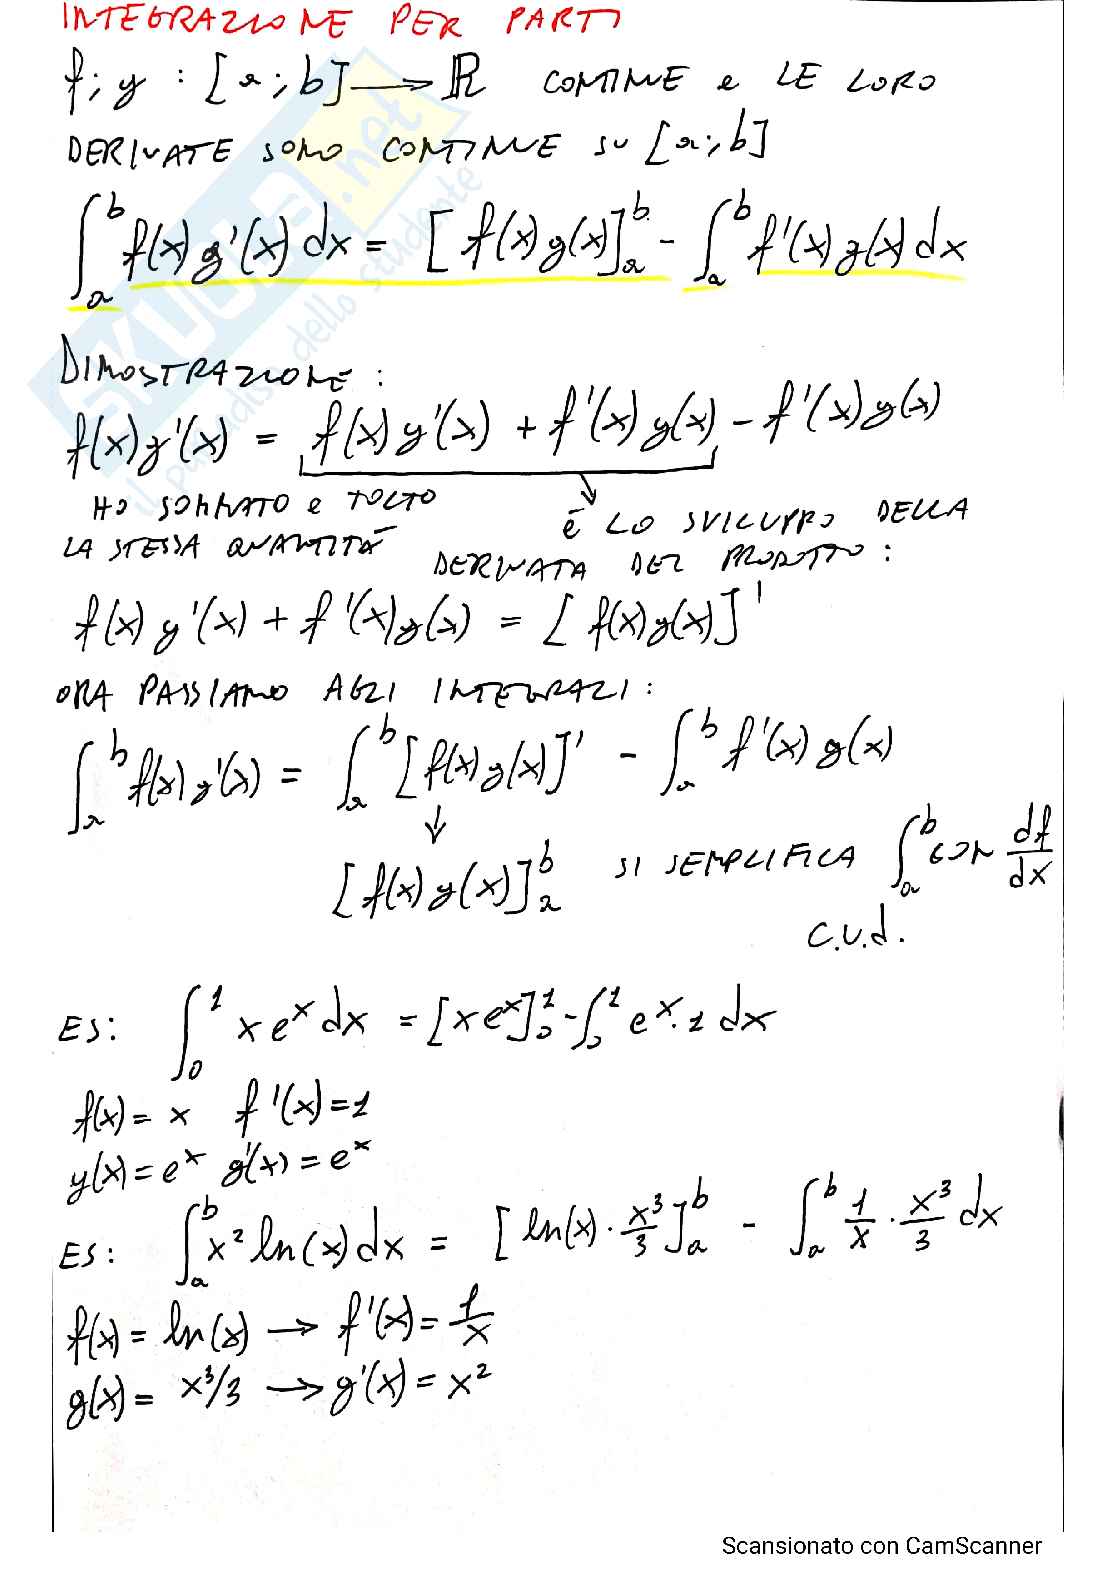 INTEGRAZIONE PER PARTI
f; g : [a; b] → ℝ CONTINUE e LE LORO
DERIVATE SONO CONTINUE SU [a; b]
∫_a^b f(x) g'(x) dx = [f(x) g(x)]_a^b - ∫_a^b f'(x) g(x) dx
DIMOSTRAZIONE:
f(x) g'(x) = f(x) g'(x) + f'(x) g(x) - f'(x) g(x)
HO SOMMATO e TOLTO
LA STESSA QUANTITÀ
↓
è LO SVILUPPO DELLA
DERIVATA DEL PRODOTTO:
f(x) g'(x) + f'(x) g(x) = [f(x) g(x)]'
ORA PASSIAMO AGLI INTEGRALI:
∫_a^b f(x) g'(x) = ∫_a^b [f(x) g(x)]' - ∫_a^b f'(x) g(x)
↓
[f(x) g(x)]_a^b SI SEMPLIFICA ∫_a^b CON df/dx
c.v.d.
ES: ∫_0^1 x e^x dx = [x e^x]_0^1 - ∫_0^1 e^x · 1 dx
f(x) = x f'(x) = 1
g(x) = e^x g'(x) = e^x
ES: ∫_a^b x² ln(x) dx = [ln(x) · x³/3]_a^b - ∫_a^b 1/x · x³/3 dx
f(x) = ln(x) → f'(x) = 1/x
g(x) = x³/3 → g'(x) = x²
SKUOLA.net
il paradiso dello studente
Scansionato con CamScanner